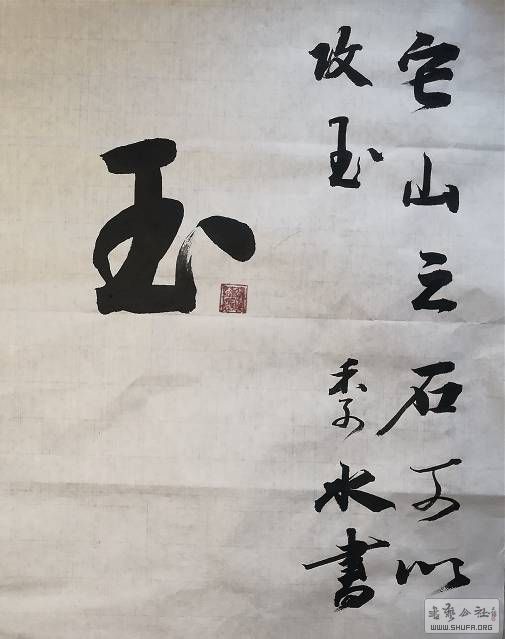 它山之石可以
攻玉
季水書
玉
書藝公社
WWW.SHUFA.ORG